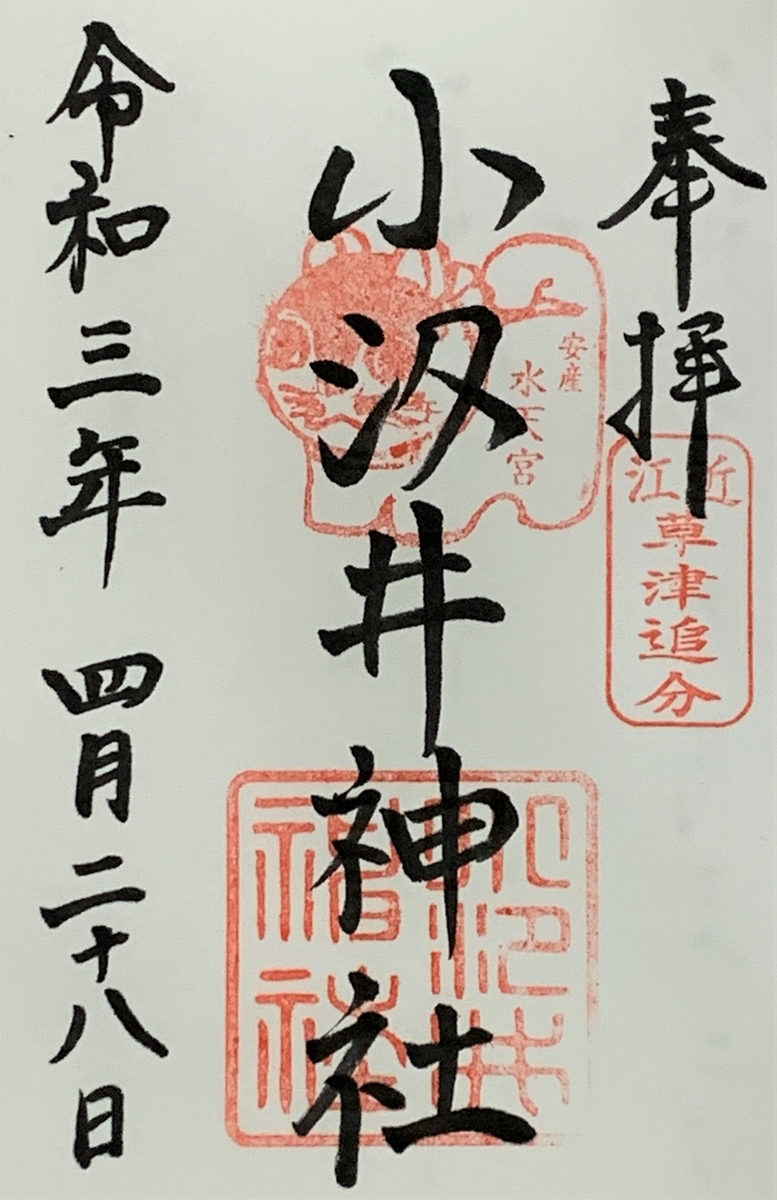 奉拝
近江
草津追分
安産
水天宮
小汲井神社
令和三年 四月二十八日